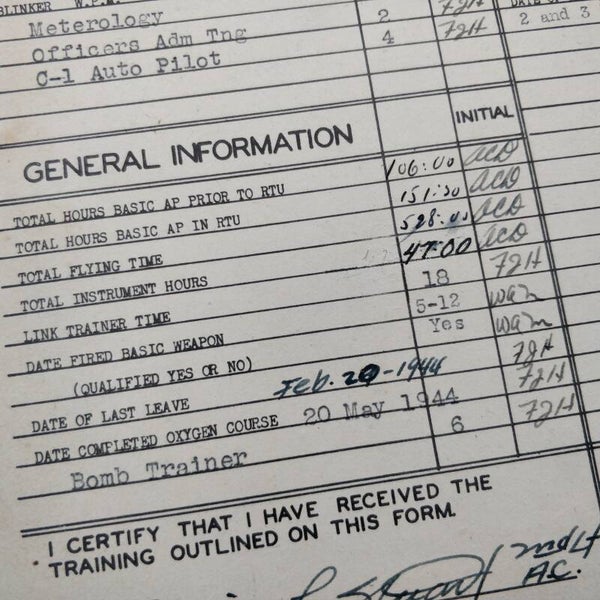 BLINKER W.P.M.
Meterology 2 72H
Officers Adm Tng 4 72H
C-1 Auto Pilot
2 and 3
GENERAL INFORMATION INITIAL
TOTAL HOURS BASIC AP PRIOR TO RTU 106:00
TOTAL HOURS BASIC AP IN RTU 151:30
TOTAL FLYING TIME 528:00
TOTAL INSTRUMENT HOURS 47:00
LINK TRAINER TIME 18 72H
DATE FIRED BASIC WEAPON 5-12
(QUALIFIED YES OR NO) Yes
DATE OF LAST LEAVE Feb. 20-1944 72H
DATE COMPLETED OXYGEN COURSE 20 May 1944 72H
Bomb Trainer 6 72H
I CERTIFY THAT I HAVE RECEIVED THE
TRAINING OUTLINED ON THIS FORM.
2nd Lt
A.C.